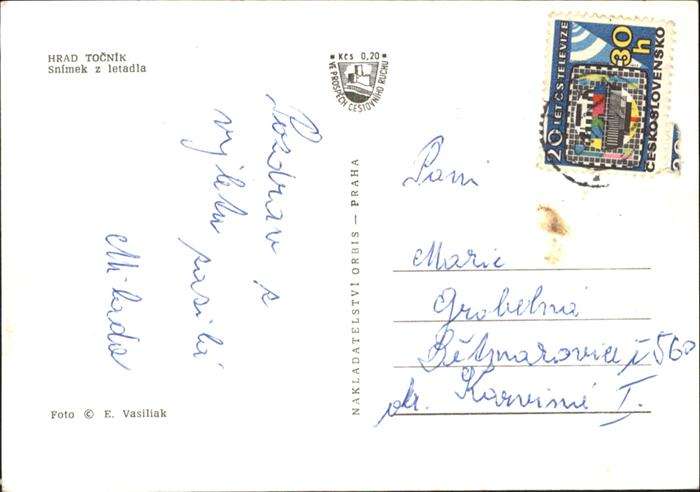 HRAD TOČNÍK
Snímek z letadla
Kčs 0,20
VE PROSPĚCH CESTOVNÍHO RUCHU
20 LET ČS TELEVIZE
30 h
ČESKOSLOVENSKO
Pozdrav z
výletu zasílá
Milada
NAKLADATELSTVÍ ORBIS — PRAHA
Paní
Marie
Grobelná
Dětmarovice č 560
okr. Karviná I.
Foto © E. Vasiliak